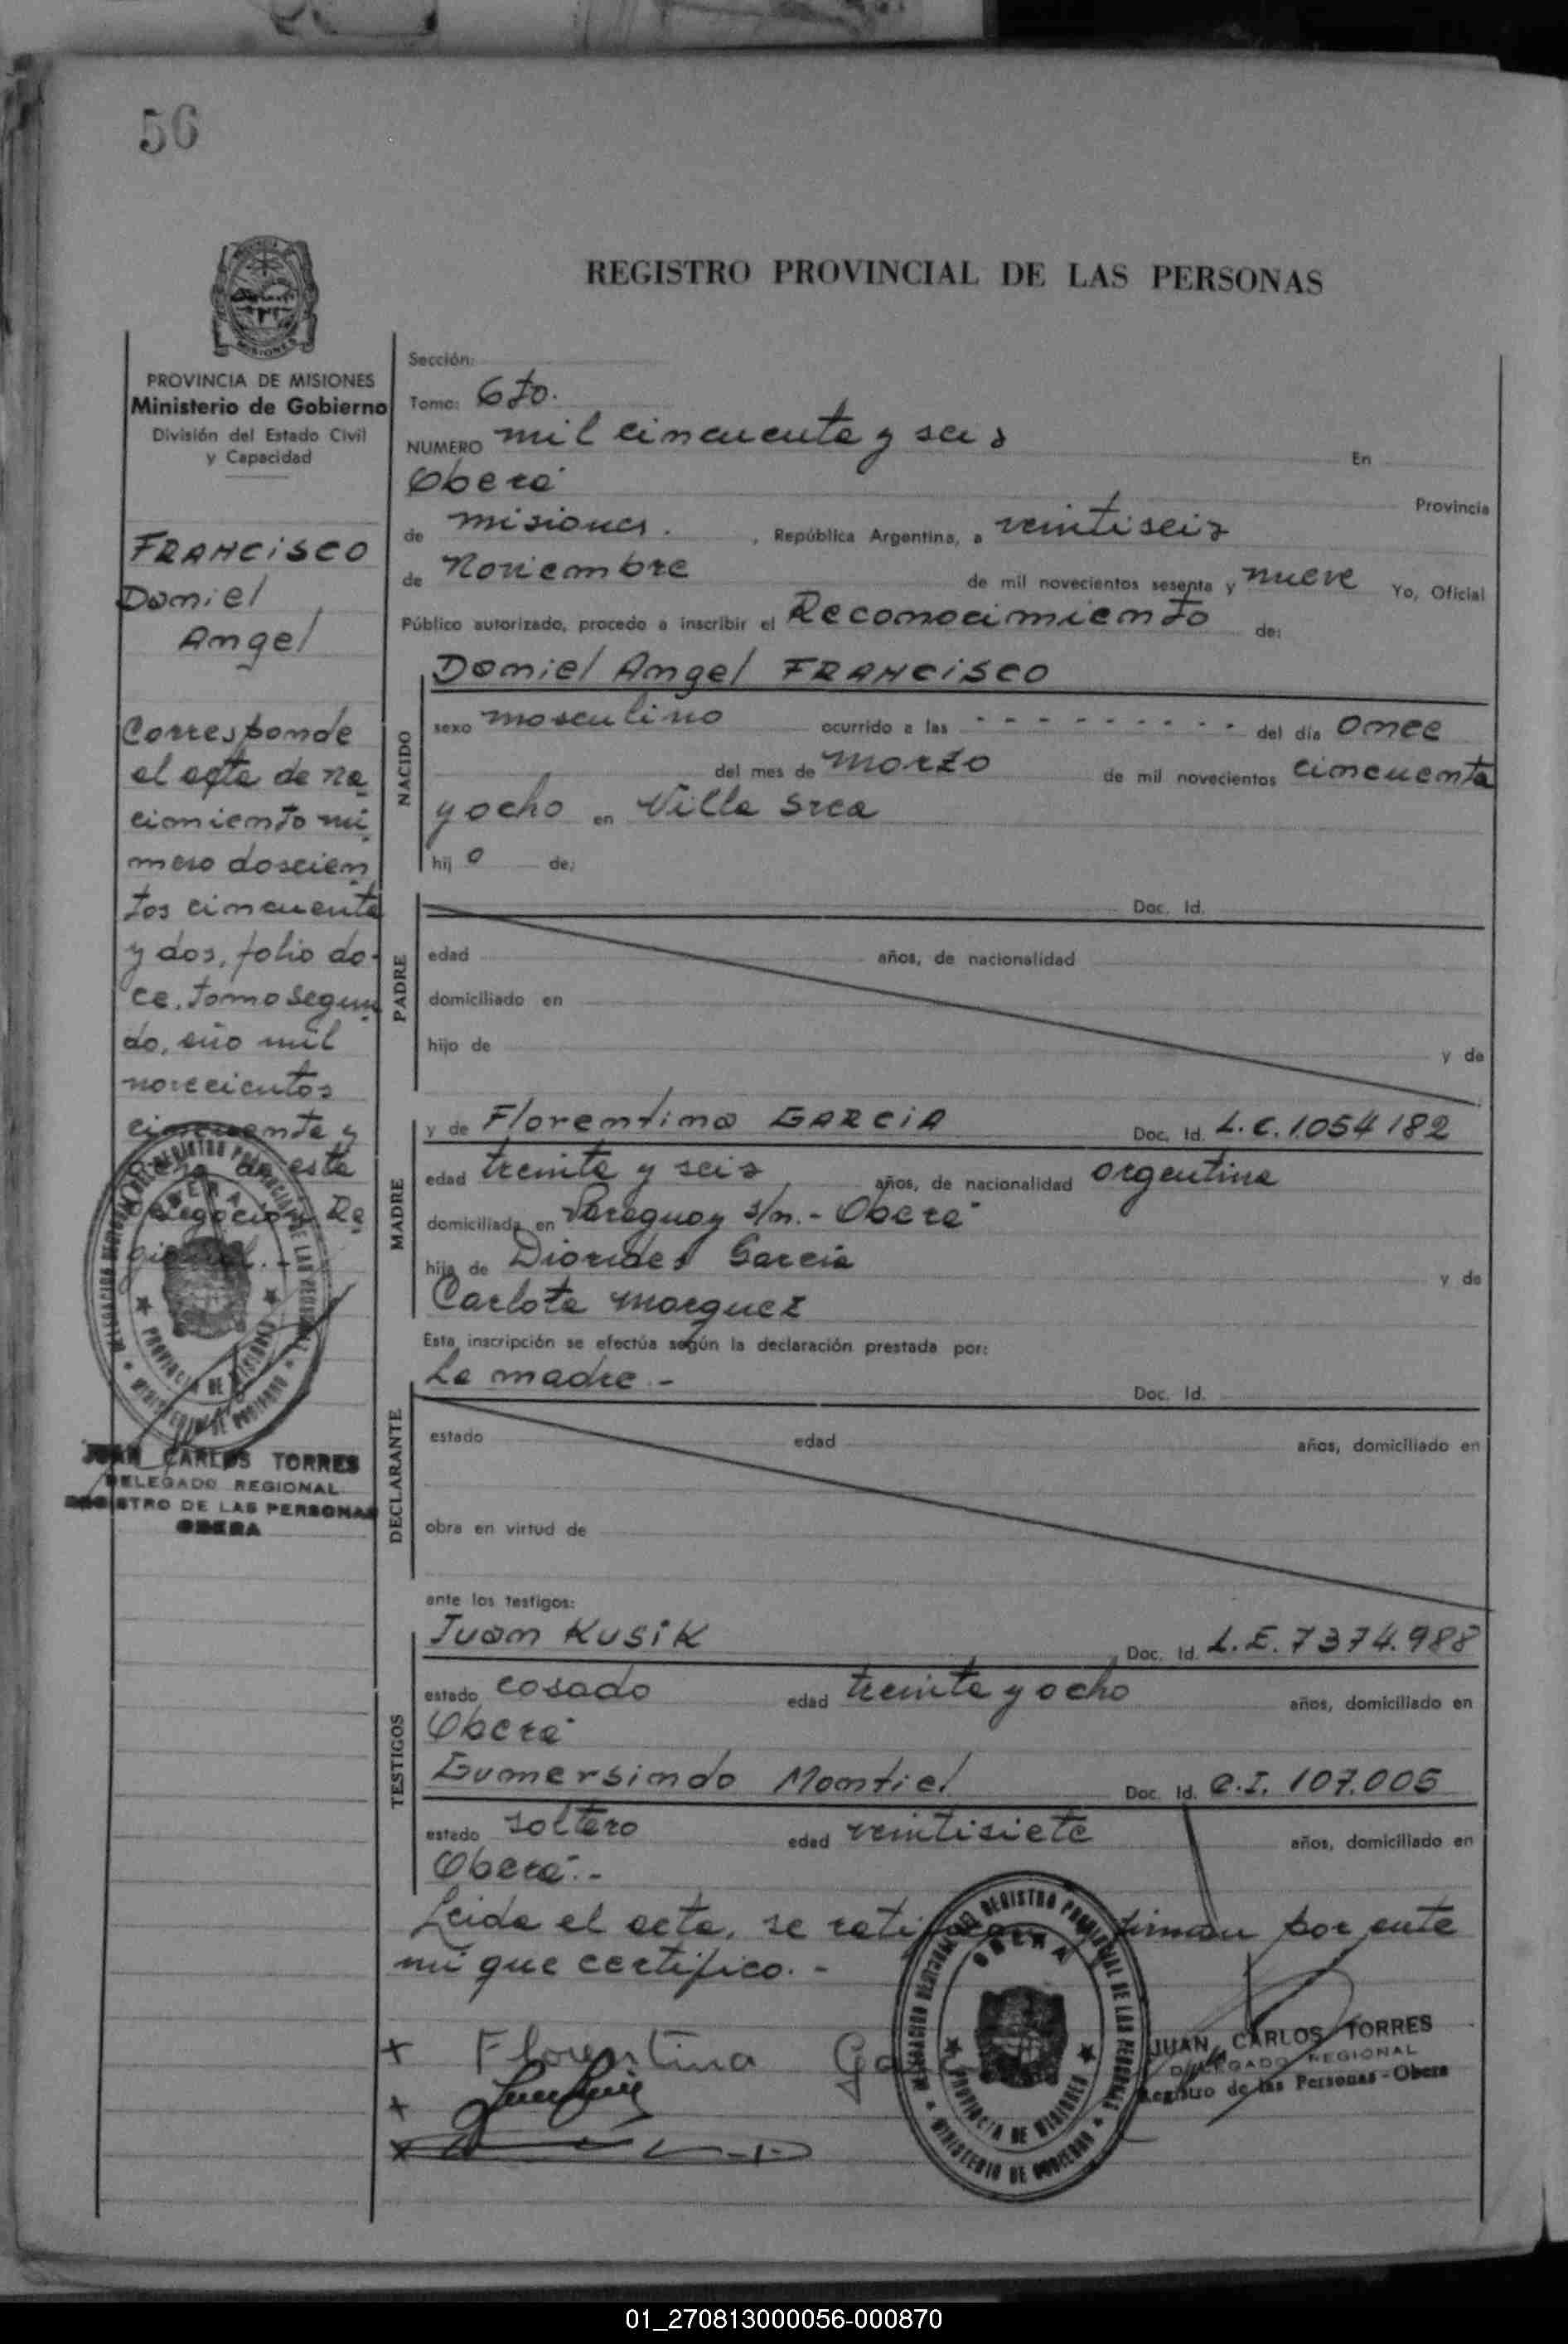 56
REGISTRO PROVINCIAL DE LAS PERSONAS
MISIONES
PROVINCIA DE MISIONES
Ministerio de Gobierno
División del Estado Civil
y Capacidad
FRANCISCO
Daniel
Angel
Corresponde
al acta de na
cimiento nú
mero doscien
tos cincuenta
y dos, folio do-
ce, tomo segun
do, año mil
novecientos
cincuenta y
ocho de esta
Delegación Re
gional.-
JUAN CARLOS TORRES
DELEGADO REGIONAL
REGISTRO DE LAS PERSONAS
OBERA
Sección:
Tomo: 6to.
NUMERO mil cincuenta y seis En
Oberá Provincia
de misiones. , República Argentina, a veintiseis
de Noviembre de mil novecientos sesenta y nueve Yo, Oficial
Público autorizado, procedo a inscribir el Reconocimiento de:
NACIDO
Daniel Angel FRANCISCO
sexo masculino ocurrido a las - - - - - - - - - del día once
del mes de marzo de mil novecientos cincuenta
y ocho en Villa Srea
hij o de:
PADRE
Doc. Id.
edad años, de nacionalidad
domiciliado en
hijo de y de
MADRE
y de Florentina GARCIA Doc. Id. L.C. 1.054182
edad treinta y seis años, de nacionalidad argentina
domiciliada en Paraguay s/n.- Oberá
hija de Diorides Garcia y de
Carlota Marquez
Esta inscripción se efectúa según la declaración prestada por:
La madre.-
DECLARANTE
Doc. Id.
estado edad años, domiciliado en
obra en virtud de
ante los testigos:
TESTIGOS
Juan KUSIK Doc. Id. L.E. 7374.988
estado casado edad treinta y ocho años, domiciliado en
Oberá
Gumersindo Montiel Doc. Id. C.I. 107.005
estado soltero edad veintisiete años, domiciliado en
Oberá.-
Leida el acta, se ratifican firman por ante
mí que certifico.-
x Florentina Ga
DELEGACION REGIONAL DEL REGISTRO PROVINCIAL DE LAS PERSONAS
OBERA
PROVINCIA DE MISIONES
MINISTERIO DE GOBIERNO
JUAN CARLOS TORRES
DELEGADO REGIONAL
Registro de las Personas - Obera
01_270813000056-000870